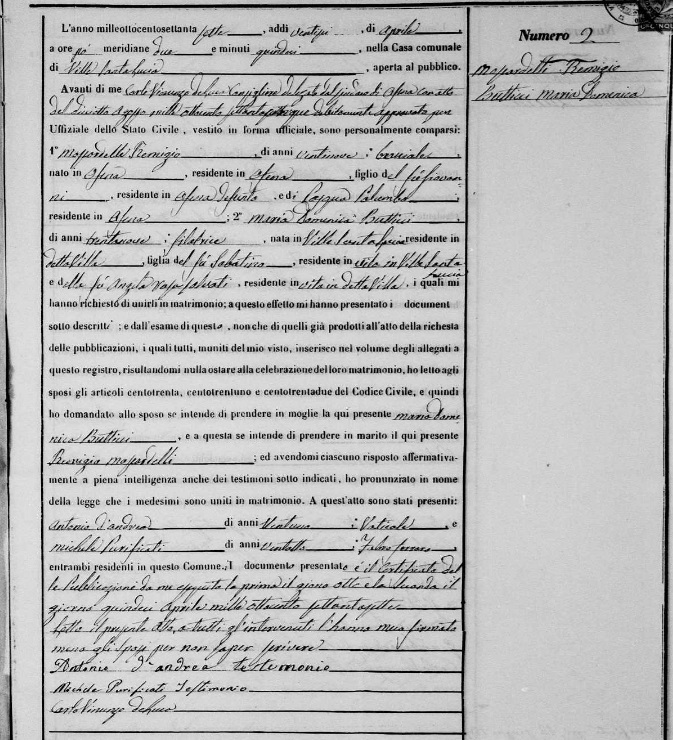 L'anno milleottocentosettanta sette, addì ventisei, di Aprile
a ore po meridiane due e minuti quindici, nella Casa comunale
di Villa Santa Lucia, aperta al pubblico.
Avanti di me Carlo Vincenzo De Luca Consigliere delegato dal Sindaco di con atto
del diciotto Agosto mille ottocento settanta cinque debitamente approvato
Uffiziale dello Stato Civile, vestito in forma uffiziale, sono personalmente comparsi:
1° Massardelli Remigio, di anni ventinove, : bracciale,
nato in, residente in, figlio del fu Giovan-
ni, residente in defunto, e di Palumbo,
residente in; 2° Maria Domenica Buttici,
di anni trentanove : filatrice, nata in Villa Santa Lucia residente in
detta Villa, figlia del fu Sabatino, residente in vita in Villa Santa
Lucia
e della fu Angela Rosa, residente in vita in detta Villa, i quali mi
hanno richiesto di unirli in matrimonio; a questo effetto mi hanno presentato i document
sotto descritti; e dall'esame di questo, non che di quelli già prodotti all'atto della richesta
delle pubblicazioni, i quali tutti, muniti del mio visto, inserisco nel volume degli allegati a
questo registro, risultandomi nulla ostare alla celebrazione del loro matrimonio, ho letto agli
sposi gli articoli centotrenta, centotrentuno e centotrentadue del Codice Civile, e quindi
ho domandato allo sposo se intende di prendere in moglie la qui presente Maria Dome-
nica Buttici, e a questa se intende di prendere in marito il qui presente
Remigio Massardelli; ed avendomi ciascuno risposto affermativa-
mente a piena intelligenza anche dei testimoni sotto indicati, ho pronunziato in nome
della legge che i medesimi sono uniti in matrimonio. A quest'atto sono stati presenti:
Antonio d'Andrea di anni Ventuno : Vaticale, e
Michele Purificati di anni ventotto : Fabro ferraro,
entrambi residenti in questo Comune. Il documento presentato è il Certificato del
le Pubblicazioni da me eseguite la prima il giorno otto e la seconda il
giorno quindici Aprile mille ottocento settantasette
Letto il presente Atto a tutti gl'intervenuti l'hanno meco firmato
meno gli sposi per non saper scrivere
Antonio d'andrea testemonio
Michele Purificati Testimonio
Carlo Vincenzo De Luca
Numero 2
Massardelli Remigio
Buttici Maria Domenica